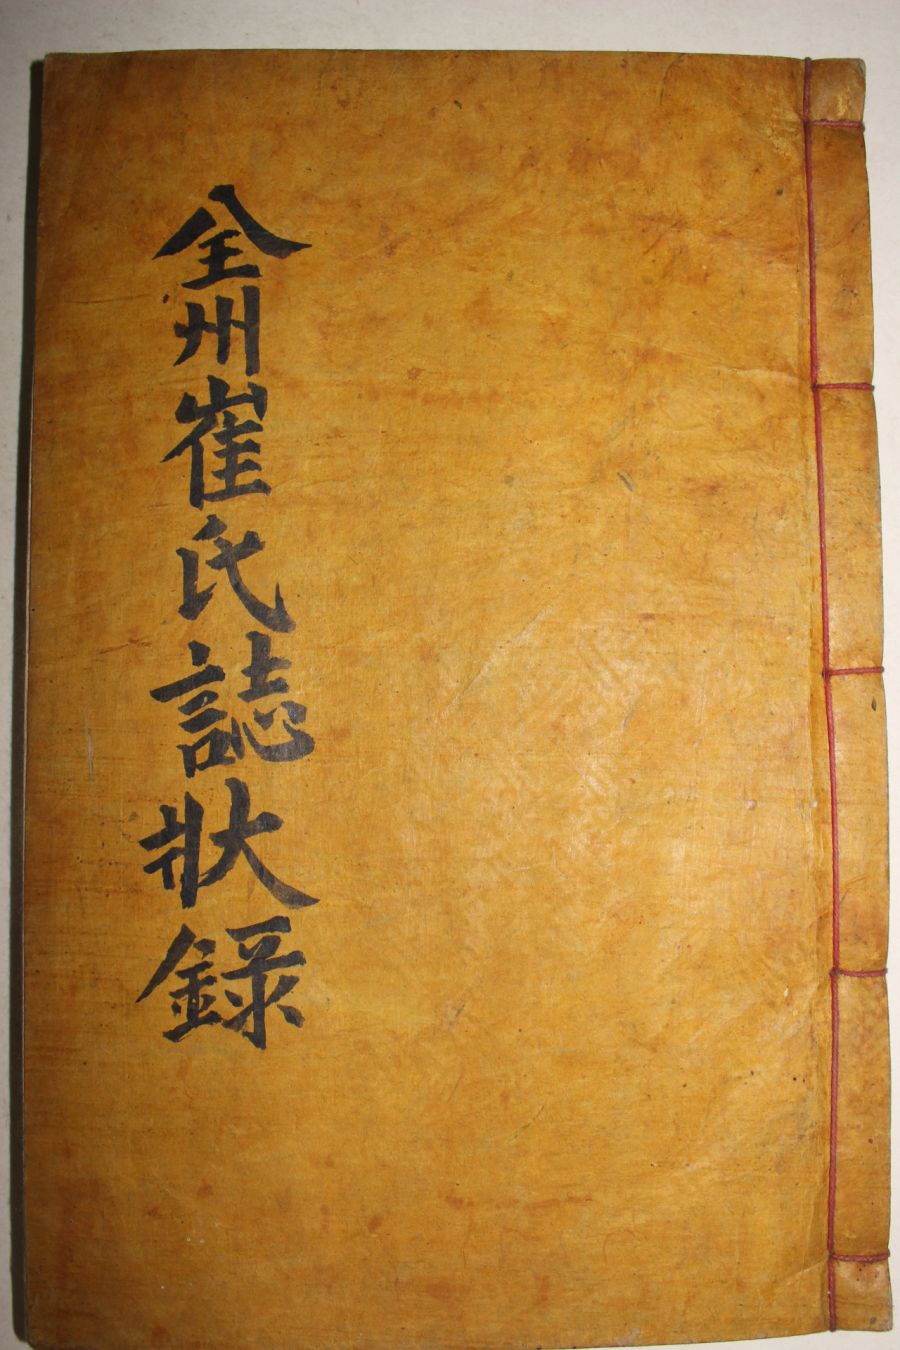 全州崔氏誌狀錄